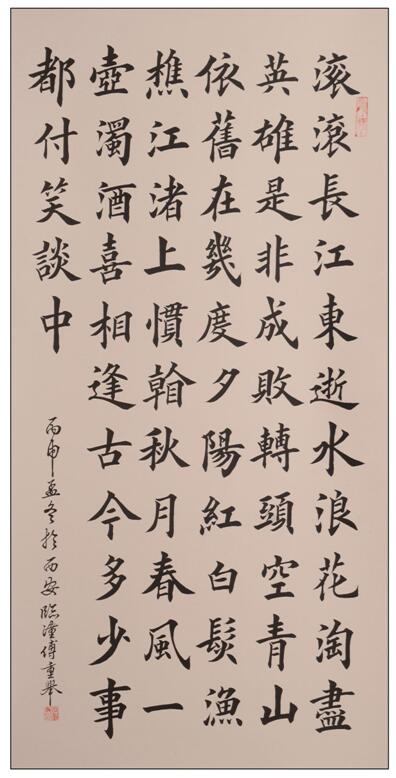 滚滚長江東逝水浪花淘盡
英雄是非成敗轉頭空青山
依舊在幾度夕陽紅白髮漁
樵江渚上慣秋月春風一
壺濁酒喜相逢古今多少事
都付笑談中
丙申孟冬於西安臨潼傅重舉